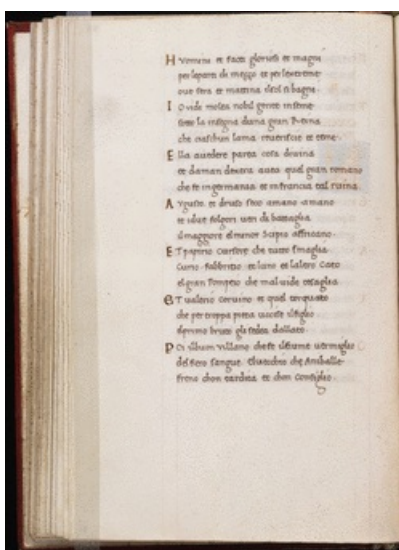 H Vomini et facti gloriosi et magni
per le parti di mezzo et per lextreme
oue sera et mattina il sol si bagna
I O vide molta nobil gente inseme
sotto la insegna duna gran Reina
che ciaschun lama reuerisce et teme
E lla auedere parea cosa diuina
et da man dextra auea quel gran romano
che fe in germania et in francia tal ruina
A Vgusto et druso seco a mano a mano
et idue folgori ueri di battaglia
il maggiore el minor Scipio affricano
E T papirio Cursore che tutto smaglia
Curio fabbritio et luno et laltro Cato
el gran Pompeio che mal uide tesaglia
E T ualerio coruino et quel torquato
che per troppa pieta uccise il figlio
el primo bruto gli sedea dallato
P Oi il buon uillano che fe il fiume uermiglio
del fiero sangue el uecchio che Aniballe
freno chon tardita et chon Consiglio